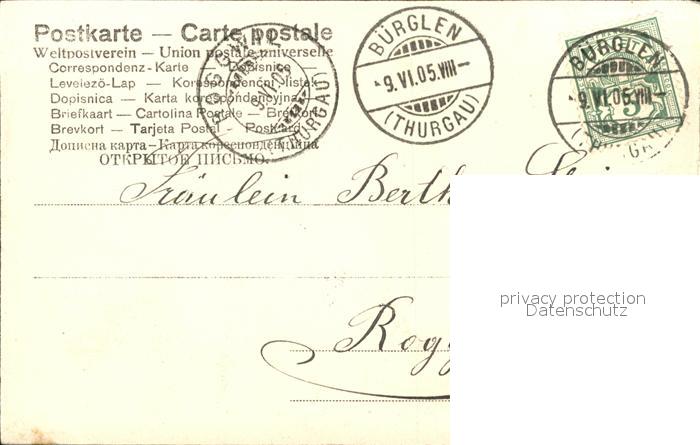 Postkarte — Carte postale
Weltpostverein — Union postale universelle
Correspondenz-Karte — Dopisnice —
Levelező-Lap — Korespondenční listek
Dopisnica — Karta korespondencyjna
Briefkaart — Cartolina Postale — Brevkort
Brevkort — Tarjeta Postal — Postkarte
Дописна карта — Карта кореспонденційна
ОТКРЫТОЕ ПИСЬМО.
(THURGAU)
BÜRGLEN
9.VI.05.VIII—
(THURGAU)
BÜRGLEN
9.VI.05.VIII—
5
Fräulein Berth
Rogg
privacy protection
Datenschutz